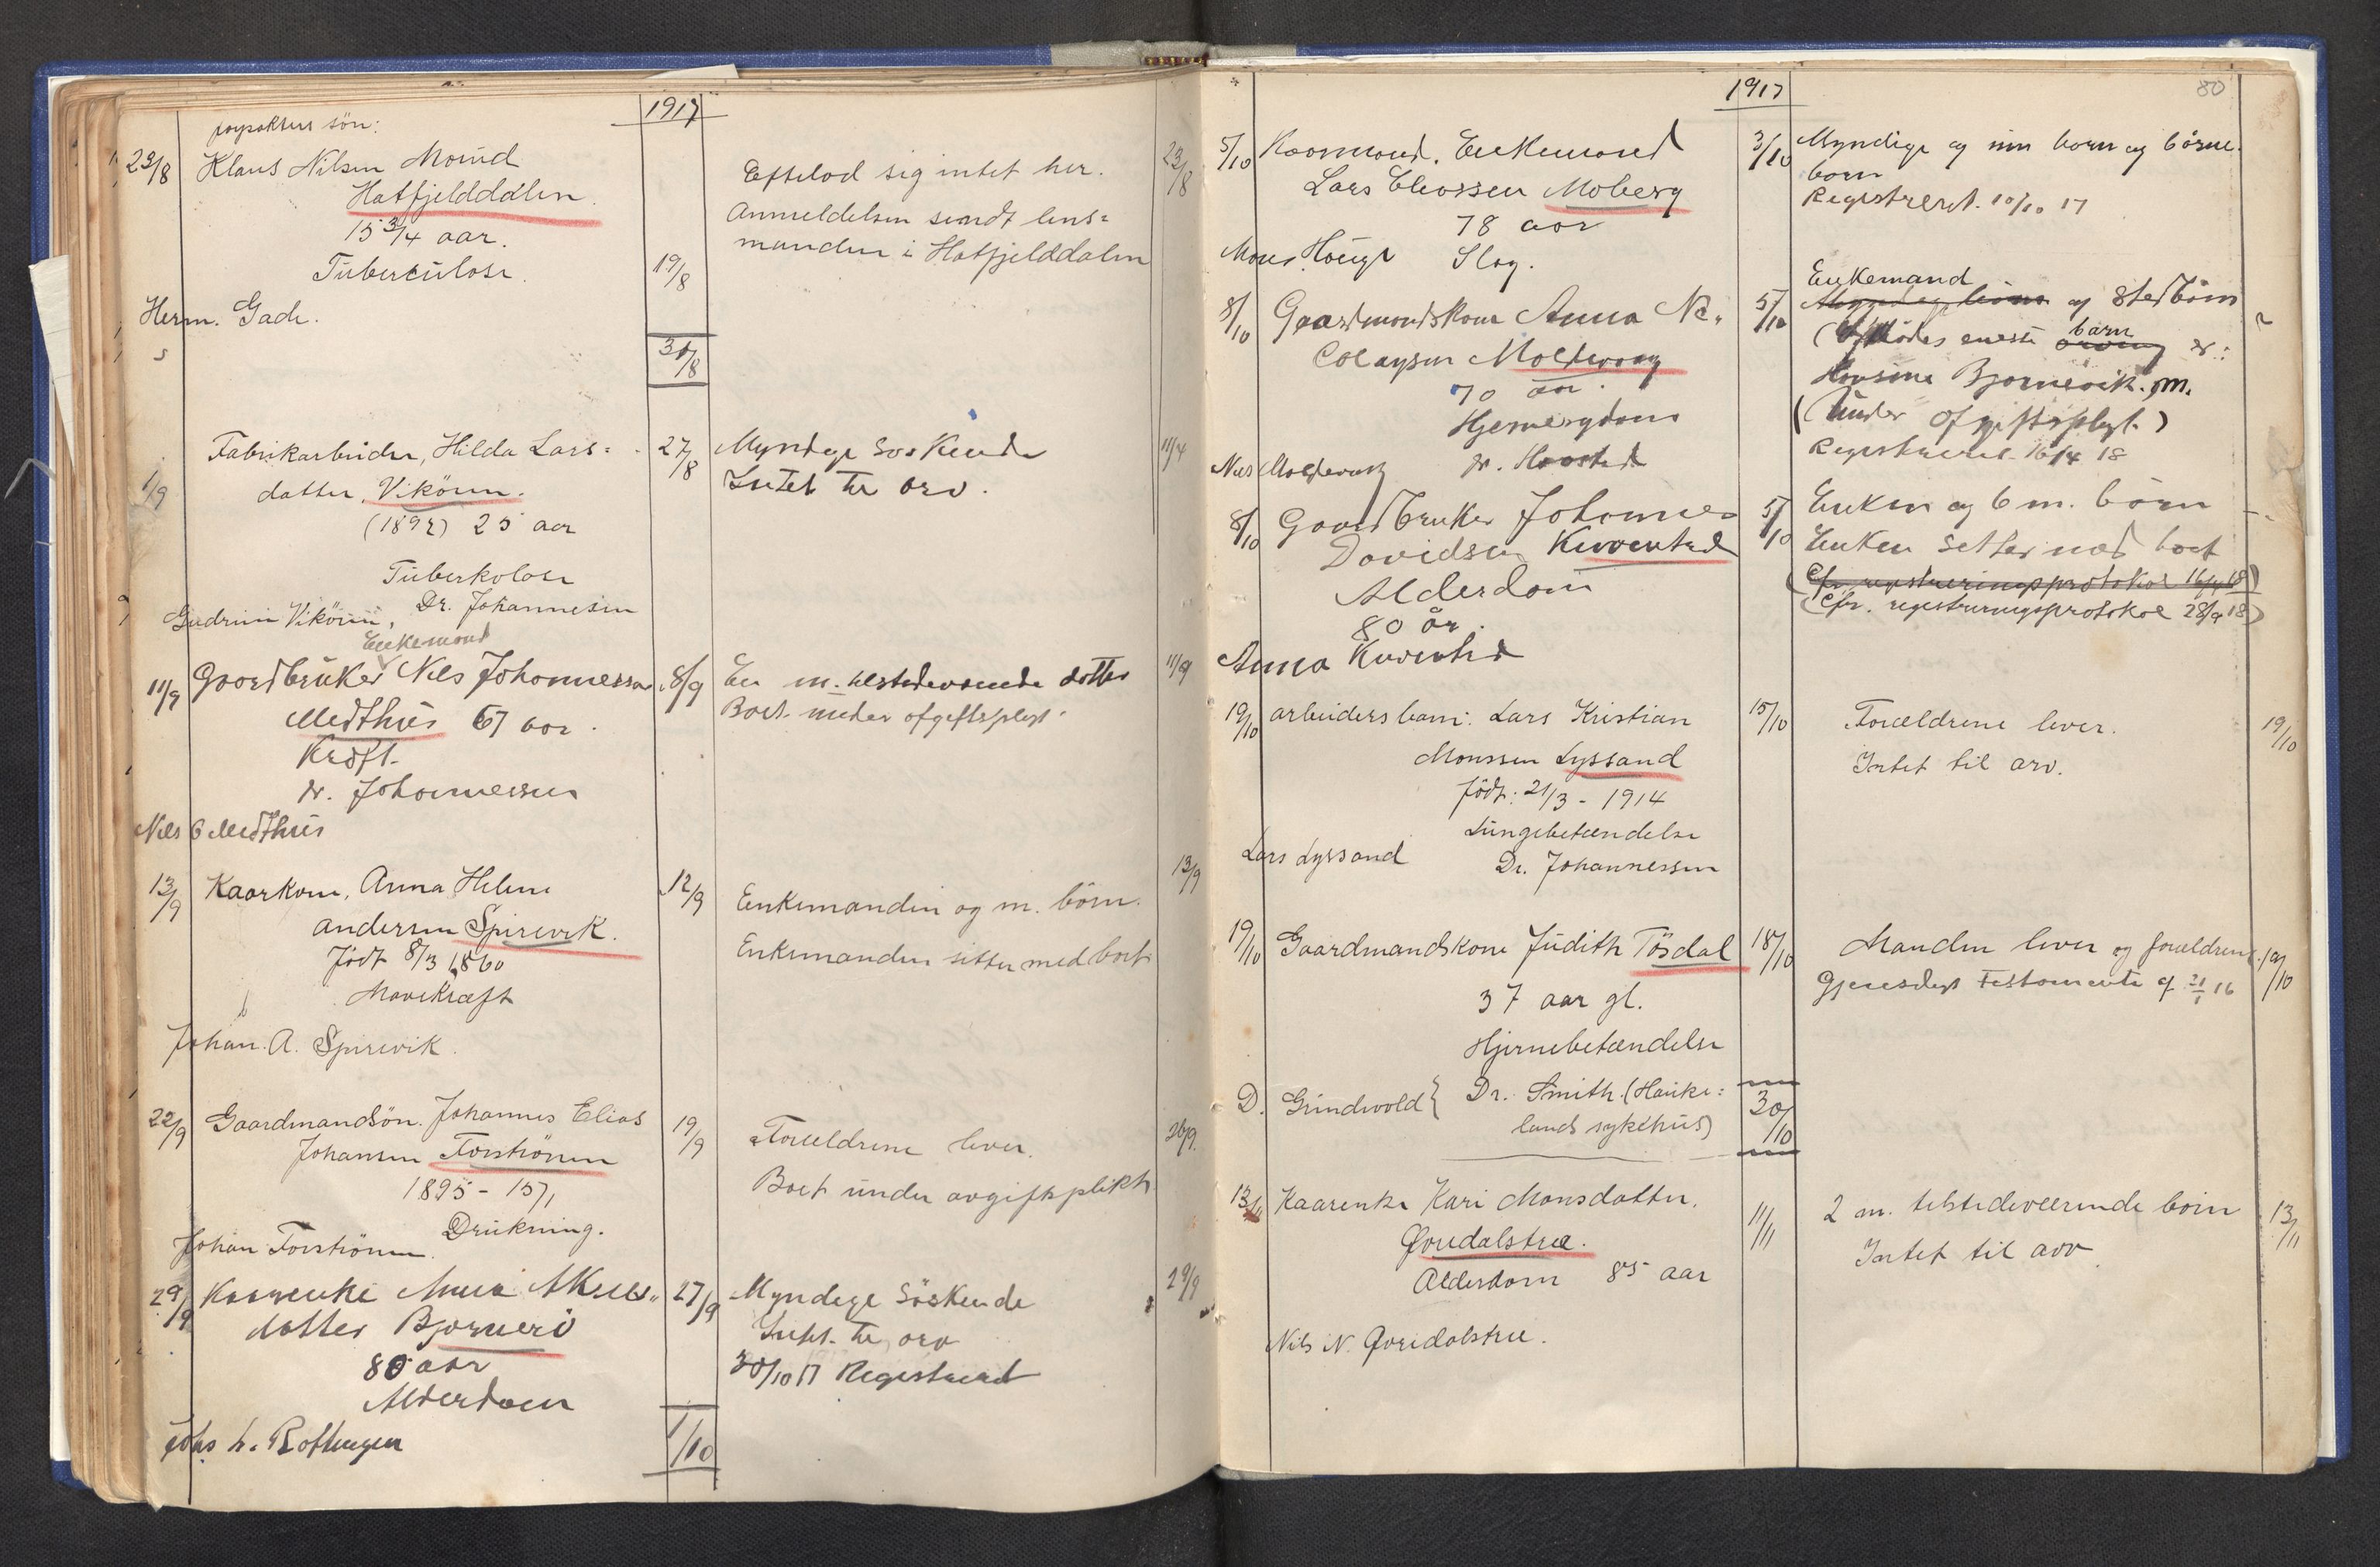 1917
søn:
23/8 Klaus Nilsen Moind 23/8
Hatfjelddalen. Efterlod sig intet her.
15 3/4 aar. Anmeldelsen sendt lens=
Tuberculose. 19/8 manden i Hatfjelddalen
Herm. Gade.
31/8
Fabrikarbeider, Hilda Lars= 27/8 Myndige Søskende 11/9
1/9 datter, Vikören. Intet til arv.
(1892) 25 aar
Tuberkolose
Gudrun Vikören, Dr. Johannesen
Enkemand
11/9 Gaardbruker Nils Johannessen 8/9 En m. tilstedeværende datter 11/9
Medthus 67 aar. Boet under afgiftspligt.
Kræft.
dr. Johannessen
Nils Medthus
13/9 Kaarkone, Anna Helene 12/9 Enkemanden og m. börn. 13/9
Andersen Spirevik. Enkemanden sitter med boet
Född 8/3 1860
Mavekræft
Johan. A. Spirevik.
22/9 Gaardmandsön. Johannes Elias 19/9 Forældrene lever. 26/9
Johansen Torströnen Boet under avgiftsplikt
1895 - 15/1
Drukning.
Johan Torströnen.
29/9 Kaarenke Anna Aknes= 27/9 Myndige Söskende 29/9
datter Bjørnerö Intet til arv
80 aar 30/10 17 Registreret
Alderdom
Johs L. Röttingen 1/10
1917 80
5/10 Kaarmand. Enkemand 3/10 Myndige og um born og börne
Lars Claussen Moberg born
78 aar Registreret. 10/10 17
Mons Hauge Slag.
Enkemand
8/10 Gaardmandskone Anna Ni= 5/10 og Stedbörn
Colaysen Moldevaag (Afdødes eneste barn er:
70 aar. Hansine Bjørnevik. m.
Hjernesygdom (Under afgiftspligt)
Nils Moldevaag dr. Haastad Registreret 16/4 18
8/10 Gaardbruker Johannes 5/10 Enken og 6 m. börn
Davidsen Kuventræ Enken setter med boet
Alderdom (Cfr. registreringsprotokol 16/4 18)
80 år. (Cfr. registreringsprotokol 28/9 18)
Anna Kuventræ
19/10 Arbeidersbarn: Lars Kristian 15/10 Forældrene lever. 19/10
Monssen Lyssand Intet til arv.
född: 21/3 - 1914
Lungebetændelse
Lars Lyssand Dr. Johannessen
19/10 Gaardmandskone Judith Tösdal 18/10 Manden lever og forældrene. 19/10
37 aar gl. Gjensidigt Testamente af 21/1 16
Hjernebetændelse
D. Grindvold { Dr. Smith. (Hauke=
lands sykehus) 30/10
13/11 Kaarenke Kari Monsdatter. 11/11 2 m. tilstedeværende börn 13/11
Øvredalstræ. Intet til arv
Alderdom 85 aar
Nils N. Øvredalstræ.